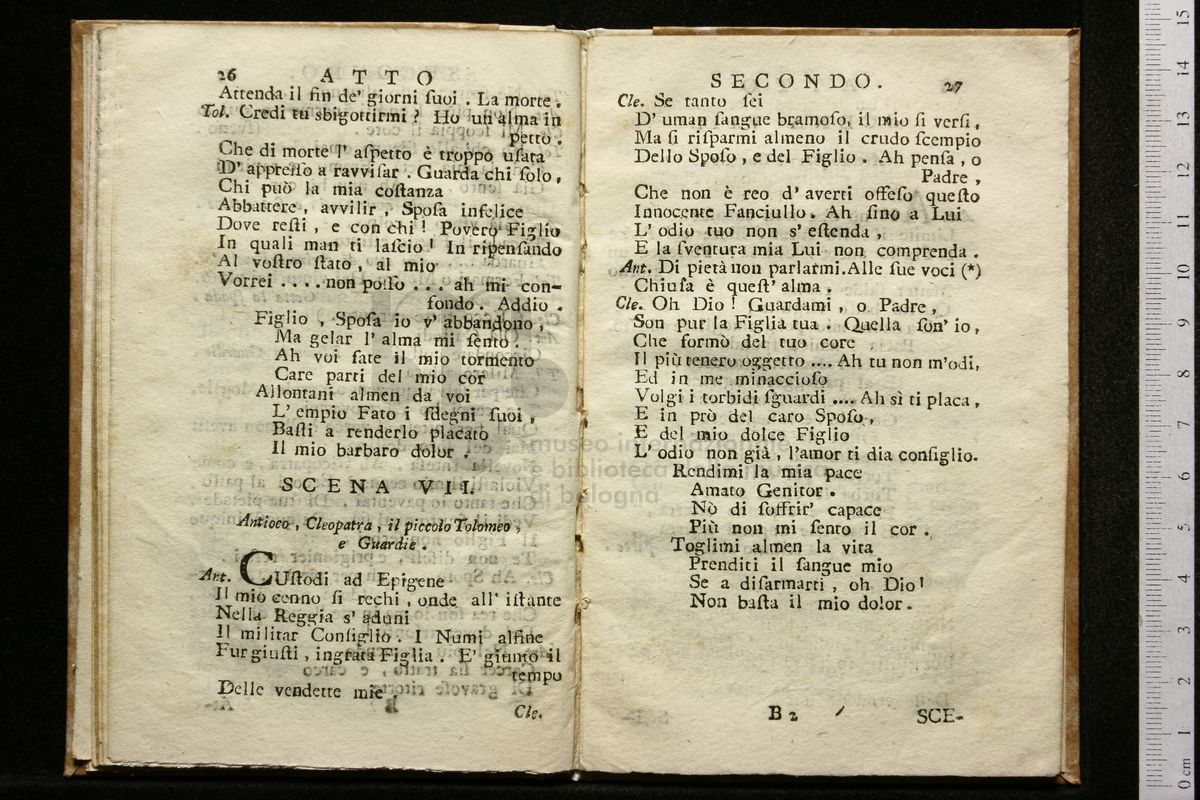 26 ATTO
Attenda il fin de' giorni ſuoi . La morte .
Tol. Credi tu sbigottirmi ? Ho un' alma in
petto .
Che di morte l' aſpetto è troppo uſata
D' appreſſo a ravviſar . Guarda chi ſolo ,
Chi può la mia coſtanza
Abbattere , avvilir , Spoſa infelice
Dove reſti , e con chi ! Povero Figlio
In quali man ti laſcio ! In ripenſando
Al voſtro ſtato , al mio
Vorrei .... non poſſo ... ah mi con-
fondo . Addio .
Figlio , Spoſa io v' abbandono ,
Ma gelar l' alma mi ſento .
Ah voi fate il mio tormento
Care parti del mio cor
Allontani almen da voi
L' empio Fato i ſdegni ſuoi ,
Baſti a renderlo placato
Il mio barbaro dolor .
SCENA VII.
Antioco , Cleopatra , il piccolo Tolomeo ,
e Guardie .
Ant. CUſtodi ad Epigene
Il mio cenno ſi rechi , onde all' iſtante
Nella Reggia s' aduni
Il militar Conſiglio . I Numi alfine
Fur giuſti , ingrata Figlia . E' giunto il
tempo
Delle vendette mie .
Cle.
SECONDO. 27
Cle. Se tanto ſei
D' uman ſangue bramoſo, il mio ſi verſi ,
Ma ſi riſparmi almeno il crudo ſcempio
Dello Spoſo , e del Figlio . Ah penſa , o
Padre ,
Che non è reo d' averti offeſo queſto
Innocente Fanciullo . Ah ſino a Lui
L' odio tuo non s' eſtenda ,
E la ſventura mia Lui non comprenda .
Ant. Di pietà non parlarmi. Alle ſue voci (*)
Chiuſa è queſt' alma .
Cle. Oh Dio ! Guardami , o Padre ,
Son pur la Figlia tua . Quella ſon' io ,
Che formò del tuo core
Il più tenero oggetto .... Ah tu non m'odi,
Ed in me minaccioſo
Volgi i torbidi ſguardi .... Ah sì ti placa ,
E in prò del caro Spoſo ,
E del mio dolce Figlio
L' odio non già , l'amor ti dia conſiglio.
Rendimi la mia pace
Amato Genitor .
Nò di ſoffrir' capace
Più non mi ſento il cor .
Toglimi almen la vita
Prenditi il ſangue mio
Se a diſarmarti , oh Dio !
Non baſta il mio dolor .
B 2
SCE-
museo internazionale
e biblioteca della musica
di bologna
0 cm 1 2 3 4 5 6 7 8 9 10 11 12 13 14 15